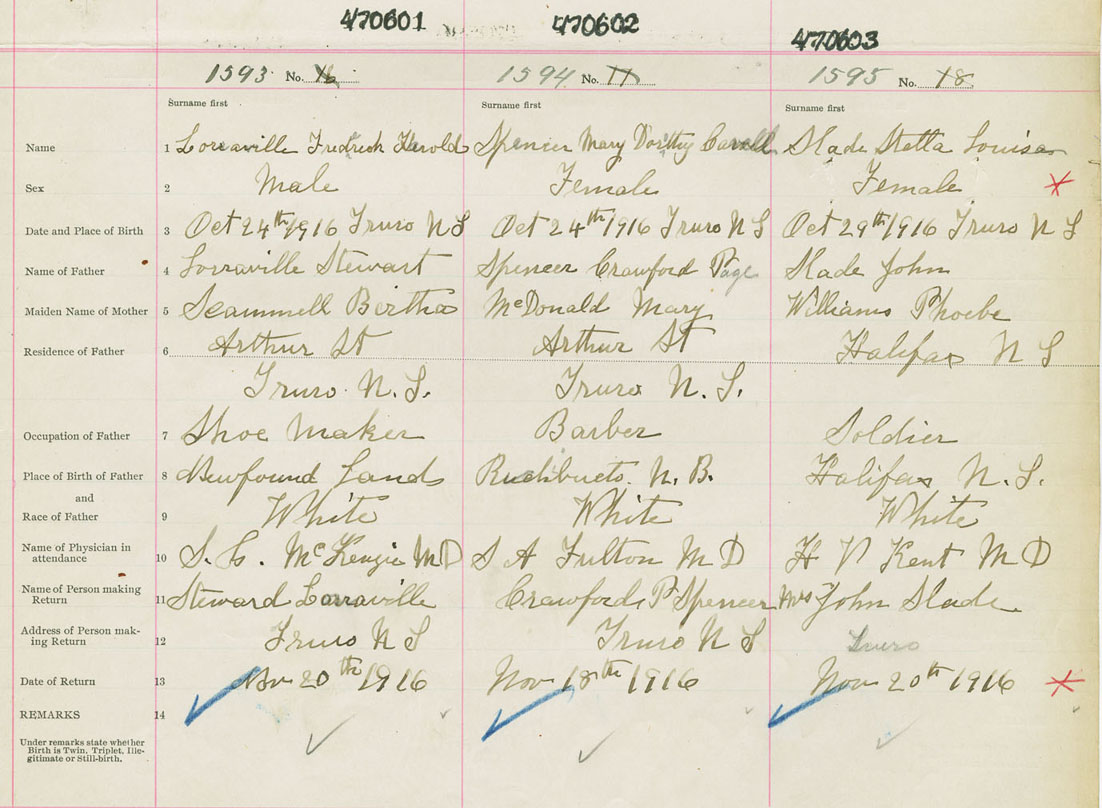 470601 470602 470603
1593 No. 16 1594 No. 17 1595 No. 18
Surname first Surname first Surname first
Name 1 Lorraville Fredrick Herold Spencer Mary Dorithy Slade Stella Louisa
Sex 2 Male Female Female
Date and Place of Birth 3 Oct 24th/1916 Truro N S Oct 24th/1916 Truro N S Oct 29th/1916 Truro N S
Name of Father 4 Lorraville Stewart Spencer Crawford Page Slade John
Maiden Name of Mother 5 Scammell Bertha McDonald Mary Williams Phoebe
Residence of Father 6 Arthur St Arthur St Halifax N S
Truro N. S. Truro N. S.
Occupation of Father 7 Shoe Maker Barber Soldier
Place of Birth of Father 8 Newfound Land N. B. Halifax N. S.
and
Race of Father 9 White White White
Name of Physician in
attendance 10 McKenzie M D S A Fulton M D H V Kent M D
Name of Person making
Return 11 Steward Lorraville Crawford P Spencer Mrs John Slade
Address of Person mak-
ing Return 12 Truro N S Truro N S Truro
Date of Return 13 Nov 20th 1916 Nov 18th 1916 Nov 20th 1916
REMARKS 14
Under remarks state whether
Birth is Twin, Triplet, Ille-
gitimate or Still-birth.